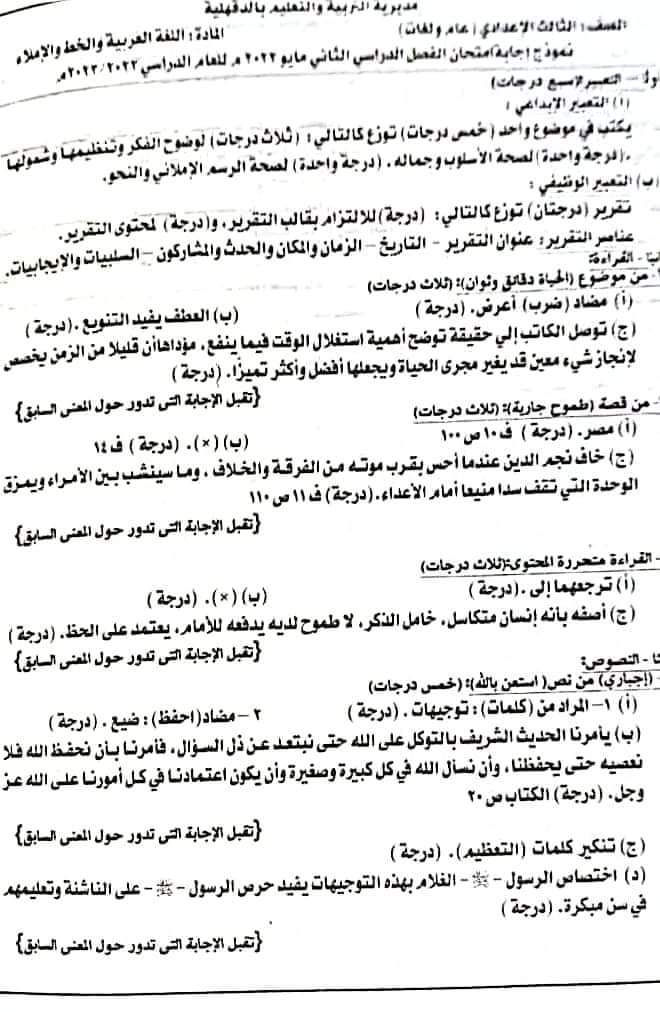 مديرية التربية والتعليم بالدقهلية
الصف : الثالث الإعدادي ( عام ولغات ) المادة : اللغة العربية والخط والإملاء
نموذج إجابة امتحان الفصل الدراسي الثاني مايو ٢٠٢٢ م للعام الدراسي ٢٠٢٢/٢٠٢٢ م
أولا – التعبير (سبع درجات)
(أ) التعبير الإبداعي :
يكتب في موضوع واحد ( خمس درجات) توزع كالتالي : ( ثلاث درجات) لوضوح الفكر وتنظيمها وشمولها
، (درجة واحدة) لصحة الأسلوب وجماله ، (درجة واحدة) لصحة الرسم الإملائي والنحو.
(ب) التعبير الوظيفي :
تقرير (درجتان) توزع كالتالي : (درجة) للالتزام بقالب التقرير ، و(درجة) لمحتوى التقرير.
عناصر التقرير : عنوان التقرير - التاريخ – الزمان والمكان والحدث والمشاركون – السلبيات والإيجابيات.
ثانيا - القراءة:
- من موضوع (الحياة دقائق وثوان): (ثلاث درجات)
(أ) مضاد (ضرب) أعرض. (درجة ) (ب) العطف يفيد التنويع . (درجة )
(ج) توصل الكاتب إلي حقيقة توضح أهمية استغلال الوقت فيما ينفع ، مؤداها أن قليلا من الزمن يخصص
لإنجاز شيء معين قد يغير مجرى الحياة ويجعلها أفضل وأكثر تميزًا. (درجة )
{تقبل الإجابة التى تدور حول المعنى السابق}
- من قصة (طموح جارية): (ثلاث درجات)
(أ) مصر. (درجة ) ف ١٠ ص ١٠٠ (ب) (×). (درجة ) ف ١٤
(ج) خاف نجم الدين عندما أحس بقرب موته من الفرقة والخلاف ، وما سينشب بين الأمراء ويمزق
الوحدة التي تقف سدا منيعا أمام الأعداء. (درجة) ف ١١ ص ١١٠
{تقبل الإجابة التى تدور حول المعنى السابق}
- القراءة متحررة المحتوى:(ثلاث درجات)
(أ) ترجعهما إلى . (درجة ) (ب) (×). (درجة )
(ج) أصفه بأنه إنسان متكاسل ، خامل الذكر، لا طموح لديه يدفعه للأمام، يعتمد على الحظ. (درجة )
{تقبل الإجابة التى تدور حول المعنى السابق}
ثالثا - النصوص:
- (إجباري) من نص( استعن بالله): (خمس درجات)
(أ) ١– المراد من (كلمات) : توجيهات . (درجة ) ٢ – مضاد (احفظ) : ضيع . (درجة )
(ب) يأمرنا الحديث الشريف بالتوكل على الله حتى نبتعد عن ذل السؤال ، فأمرنا بأن نحفظ الله فلا
نعصيه حتى يحفظنا ، وأن نسأل الله في كل كبيرة وصغيرة وأن يكون اعتمادنا في كل أمورنا على الله عز
وجل . (درجة) الكتاب ص ٢٠
{تقبل الإجابة التى تدور حول المعنى السابق}
(ج) تنكير كلمات (التعظيم). (درجة )
(د) اختصاص الرسول - ﷺ - الغلام بهذه التوجيهات يفيد حرص الرسول - ﷺ - على الناشئة وتعليمهم
في سن مبكرة. (درجة )
{تقبل الإجابة التى تدور حول المعنى السابق}